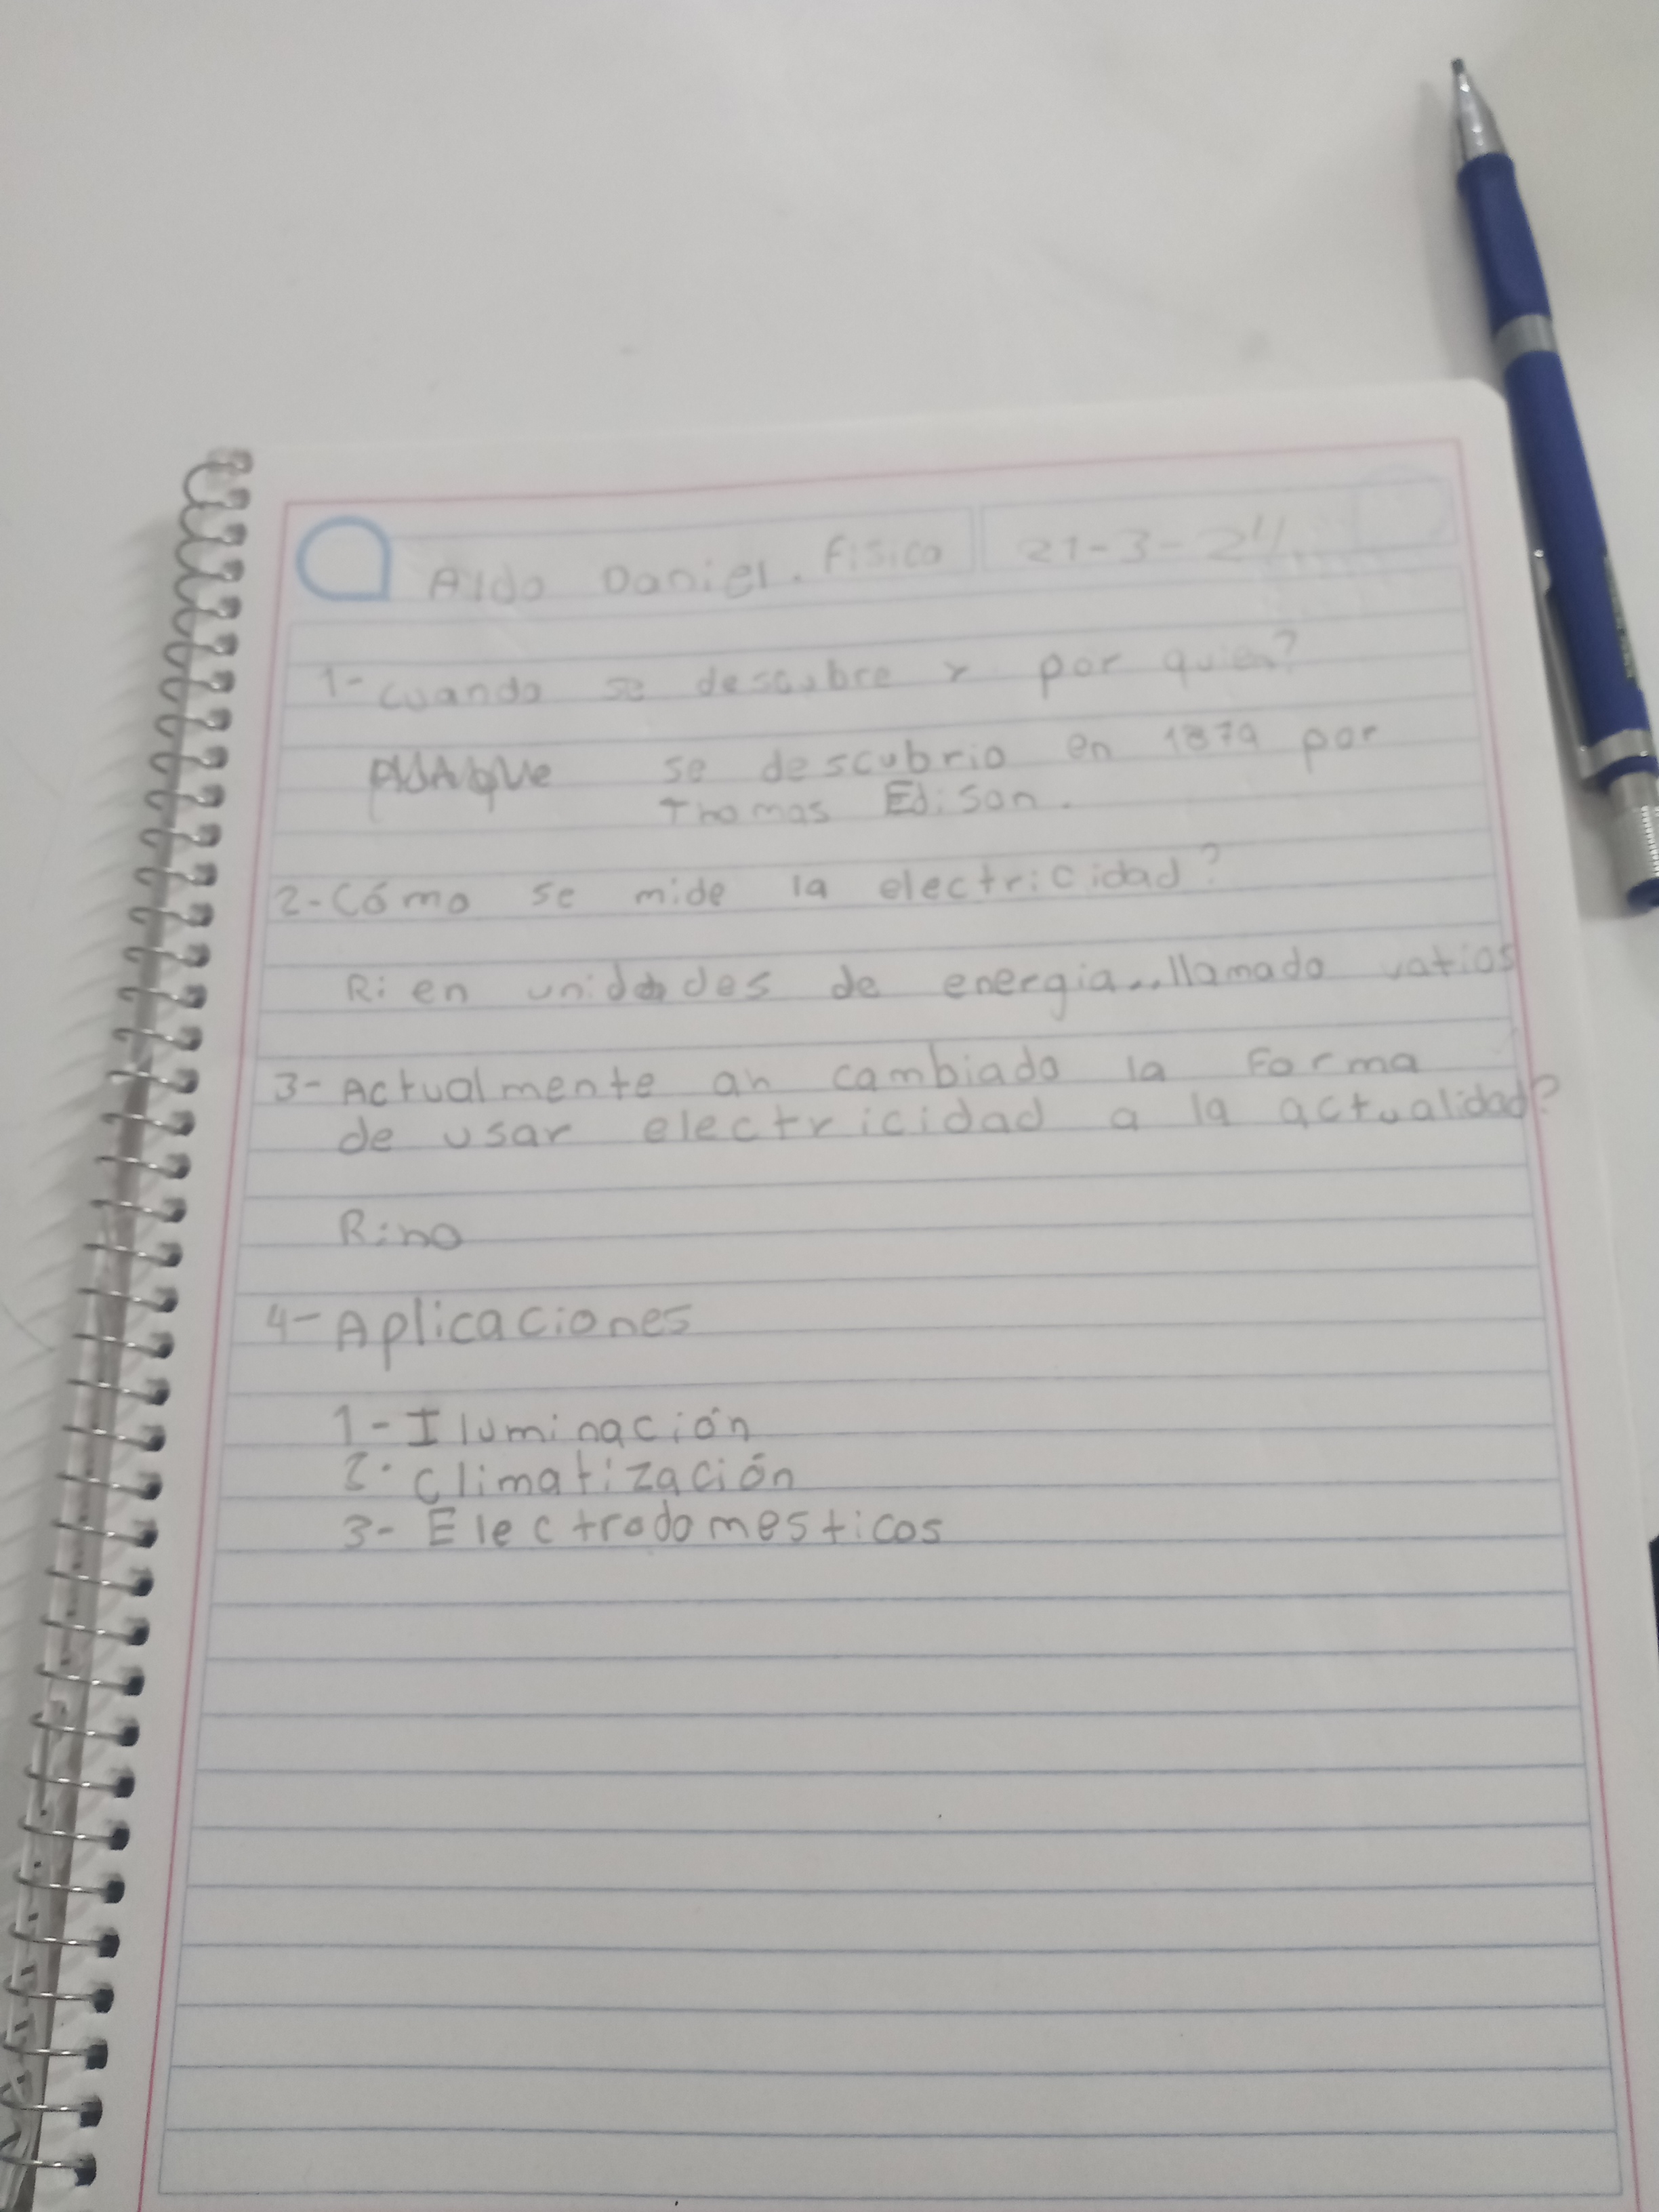 Aldo Daniel. Fisica 21-3-24
1- cuando se descubre y por quien?
se descubrio en 1879 por
Thomas Edison.
2- Cómo se mide la electricidad?
R: en unidades de energia...llamado vatios
3- Actualmente ah cambiado la Forma
de usar electricidad a la actualidad?
R: no
4- Aplicaciones
1- Iluminación
2- Climatización
3- Electrodomesticos